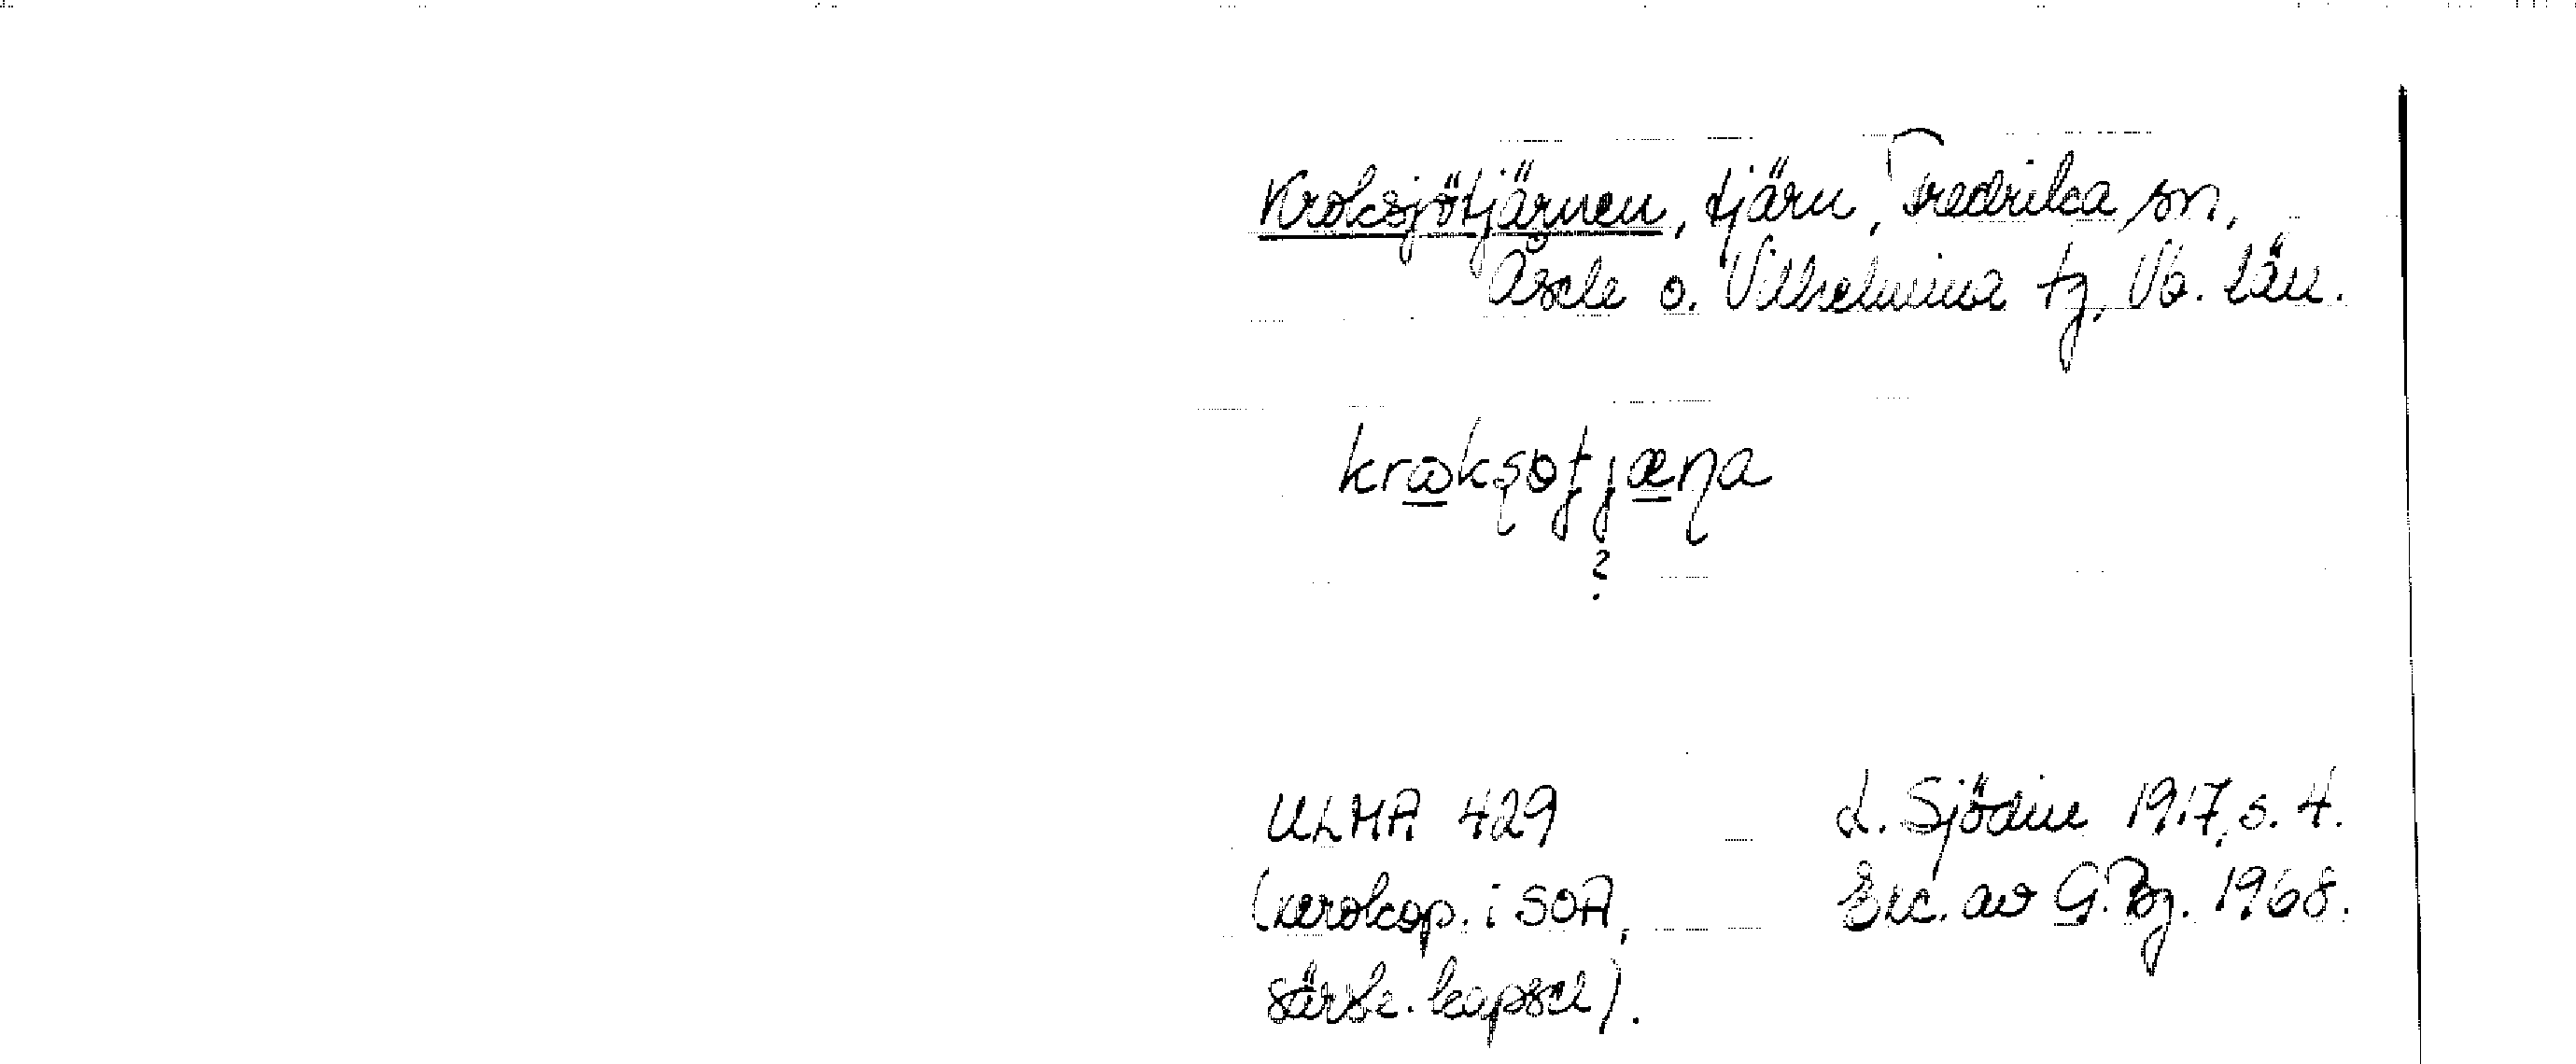 Kroksjötjärnen, tjärn, Fredrika sn,
Åsele o. Vilhelmina tg, Vb. län.
krakʂotjæɳa
?
ULMA 429
(xerokop. i SOA,
särsk. kapsel).
L. Sjödin 1917, s. 4.
Exc. av G. Bg. 1968.